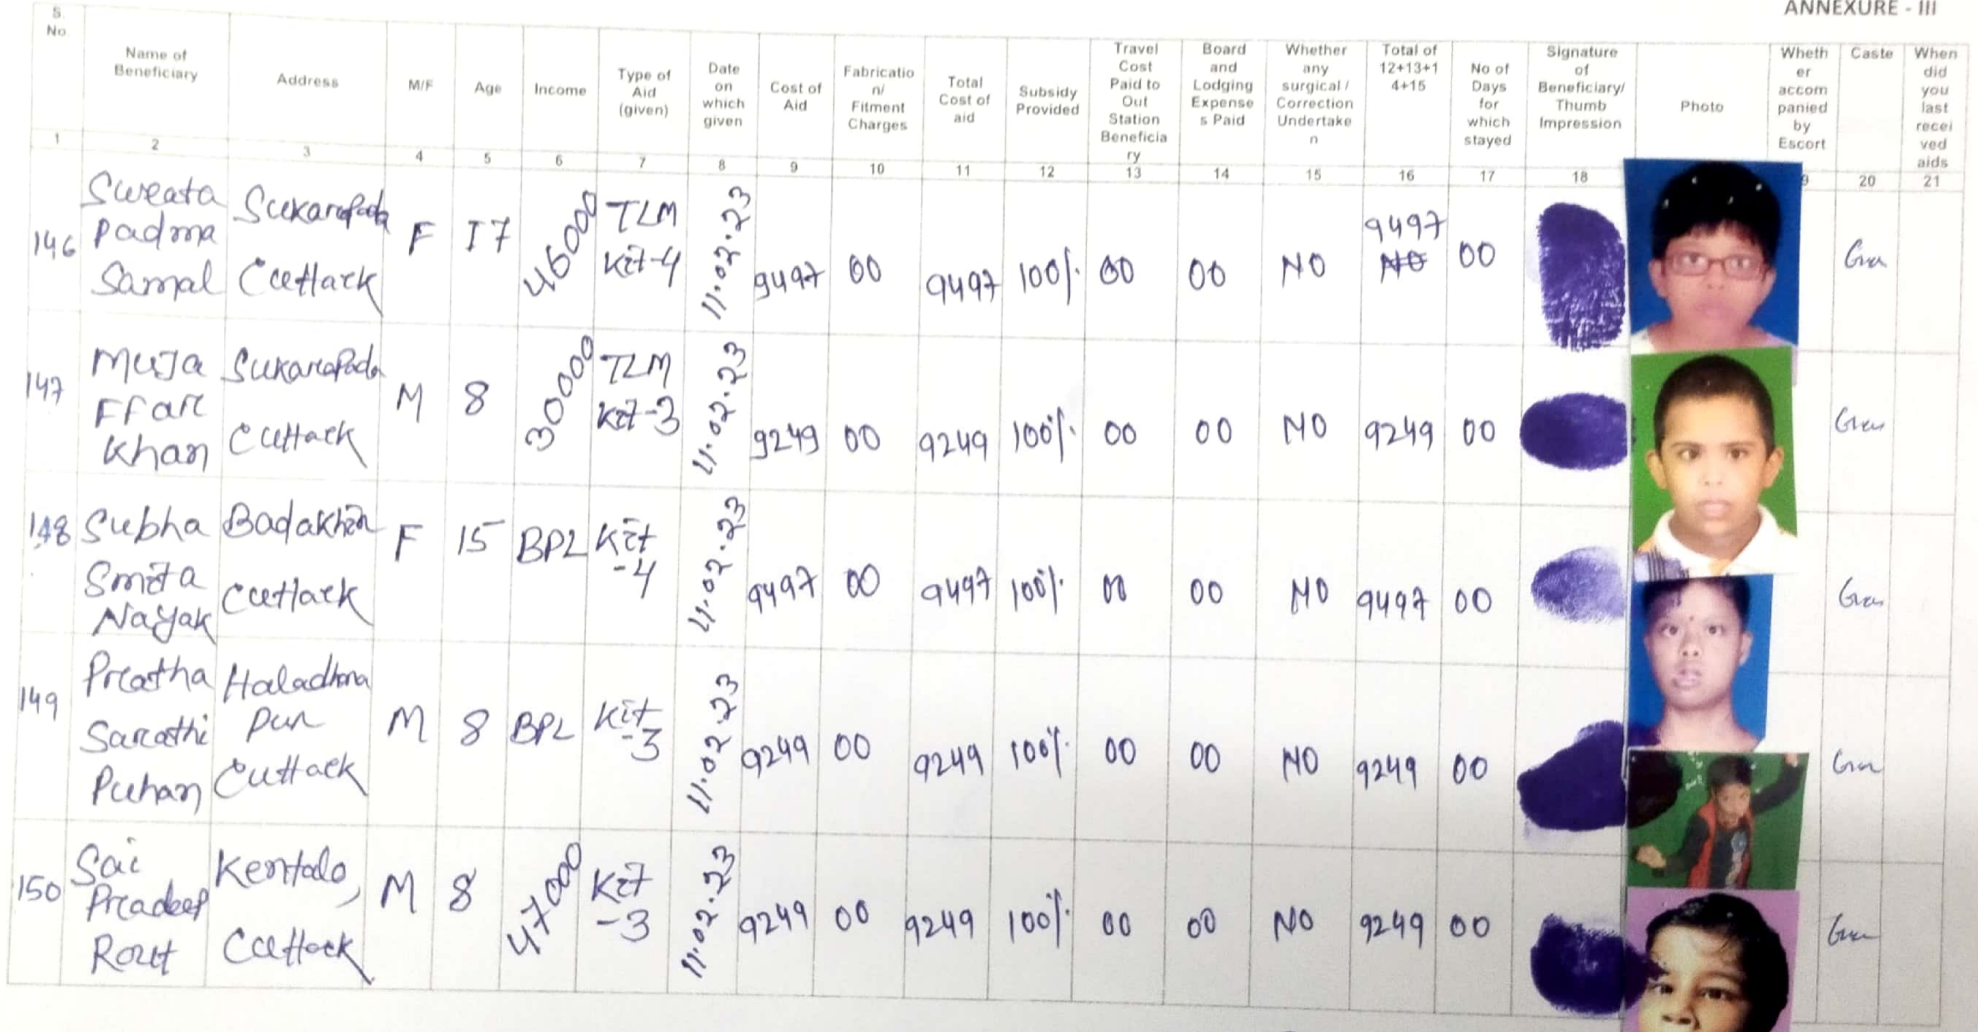 ANNEXURE - III
S. No
Name of Beneficiary
Address
M/F
Age
Income
Type of Aid (given)
Date on which given
Cost of Aid
Fabricatio n/ Fitment Charges
Total Cost of aid
Subsidy Provided
Travel Cost Paid to Out Station Beneficia ry
Board and Lodging Expense s Paid
Whether any surgical / Correction Undertake n
Total of 12+13+1 4+15
No of Days for which stayed
Signature of Beneficiary/ Thumb Impression
Photo
Wheth er accom panied by Escort
Caste
When did you last recei ved aids
1 2 3 4 5 6 7 8 9 10 11 12 13 14 15 16 17 18 9 20 21
146 Sweata Padma Samal Sukarapada Cuttack F 17 46000 TLM Kit-4 11.02.23 9497 00 9497 100% 00 00 NO 9497 NO 00 Gen
147 Muja Ffar Khan Sukarapada Cuttack M 8 30000 TLM Kit-3 11.02.23 9249 00 9249 100% 00 00 NO 9249 00 Gen
148 Subha Smita Nayak Badakhin Cuttack F 15 BPL Kit -4 11.02.23 9497 00 9497 100% 00 00 NO 9497 00 Gen
149 Pratha Sarathi Puhan Haladhna pur Cuttack M 8 BPL Kit -3 11.02.23 9249 00 9249 100% 00 00 NO 9249 00 Gen
150 Sai Pradeep Rout Kentalo, Cuttack M 8 47000 Kit -3 11.02.23 9249 00 9249 100% 00 00 NO 9249 00 Gen